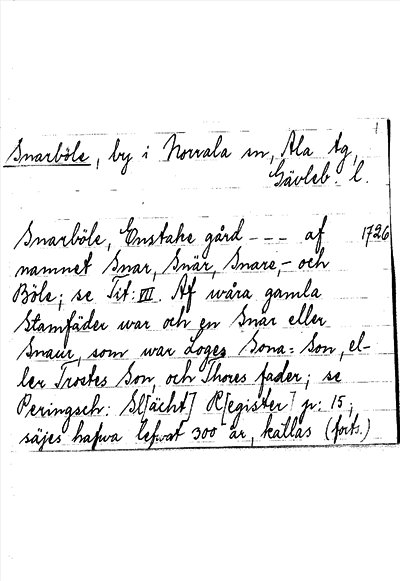 1
Snarböle, by i Norrala sn, Ala tg,
Gävleb. l.
Snarböle, Enstake gård --- af 1726
namnet Snar, Snär, Snare,- och
Böle; se Tit: VII. Af wåra gamla
Stamfäder war och en Snar eller
Snaur, som war Loges Sona=Son, el-
ler Trostes Son, och Thores fader; se
Peringsch: Sl[ächt] R[egister] p: 15;
säjes hafwa lefwat 300 år, kallas (forts.)